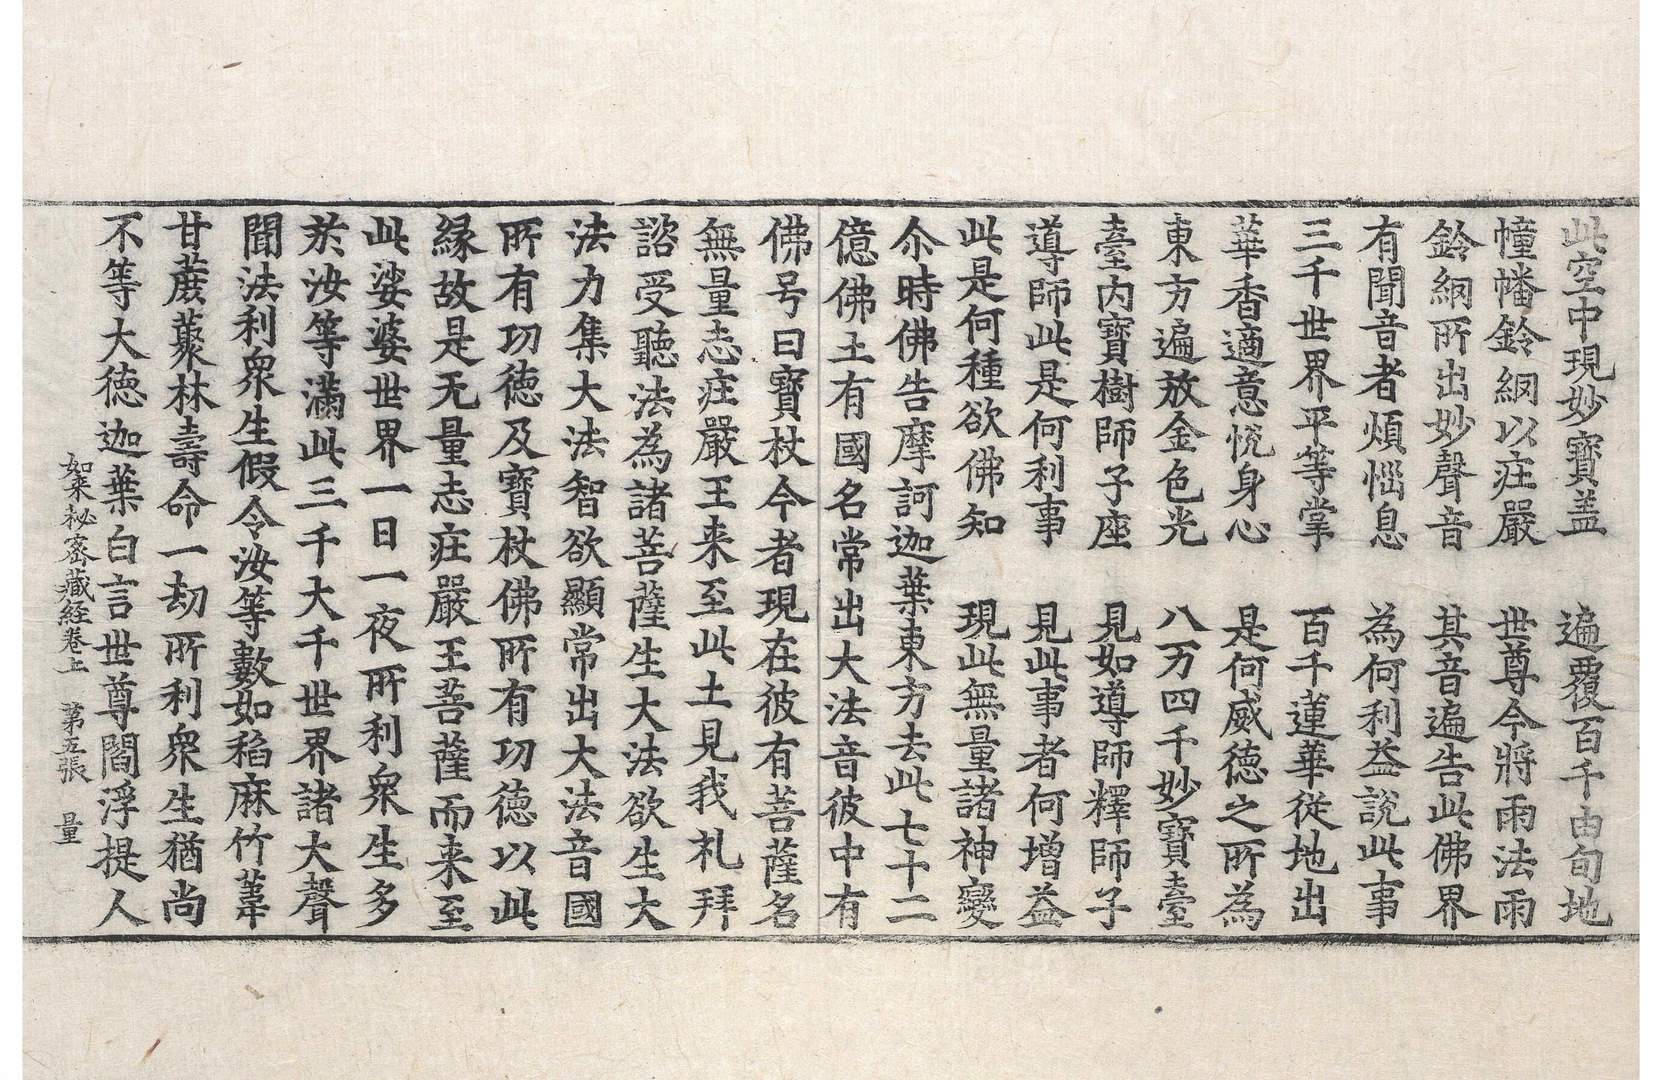 此空中現妙寶盖　遍覆百千由旬地
幢幡鈴網以庄嚴　世尊今將雨法雨
鈴網所出妙聲音　其音遍告此佛界
有聞音者煩惱息　為何利益說此事
三千世界平等掌　百千蓮華從地出
華香適意悅身心　是何威德之所為
東方遍放金色光　八万四千妙寶臺
臺內寶樹師子座　見如導師釋師子
導師此是何利事　見此事者何增益
此是何種欲佛知　現此無量諸神變
尒時佛告摩訶迦葉東方去此七十二
億佛土有國名常出大法音彼中有
佛号曰寶杖今者現在彼有菩薩名
無量志庄嚴王来至此土見我礼拜
諮受聽法為諸菩薩生大法欲生大
法力集大法智欲顯常出大法音國
所有功德及寶杖佛所有功德以此
緣故是无量志庄嚴王菩薩而来至
此娑婆世界一日一夜所利衆生多
於汝等滿此三千大千世界諸大聲
聞法利衆生假令汝等數如稻麻竹葦
甘蔗藂林壽命一劫所利衆生猶尚
不等大德迦葉白言世尊閻浮提人
如来祕密藏經卷上　第五張　量